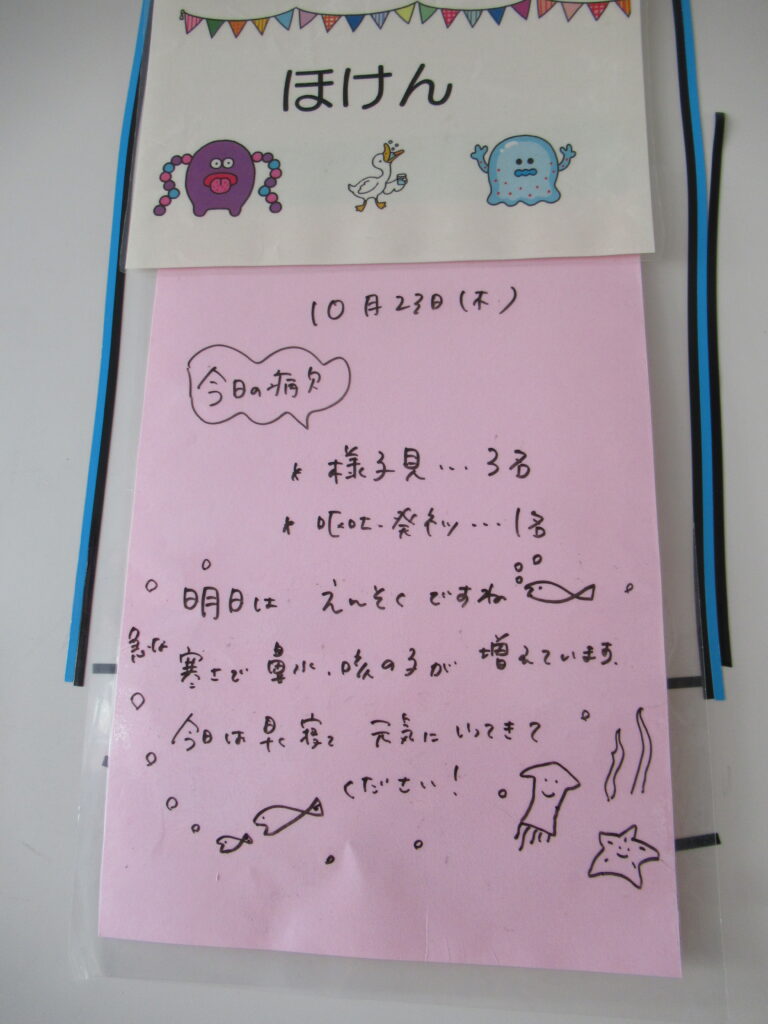 ほけん
10月23日(木)
今日の病欠
* 様子見…3名
* 嘔吐・発熱…1名
明日は えんそくですね
急な
寒さで 鼻水、咳の子が 増えています。
今日は早く寝て 元気にいってきて
ください!